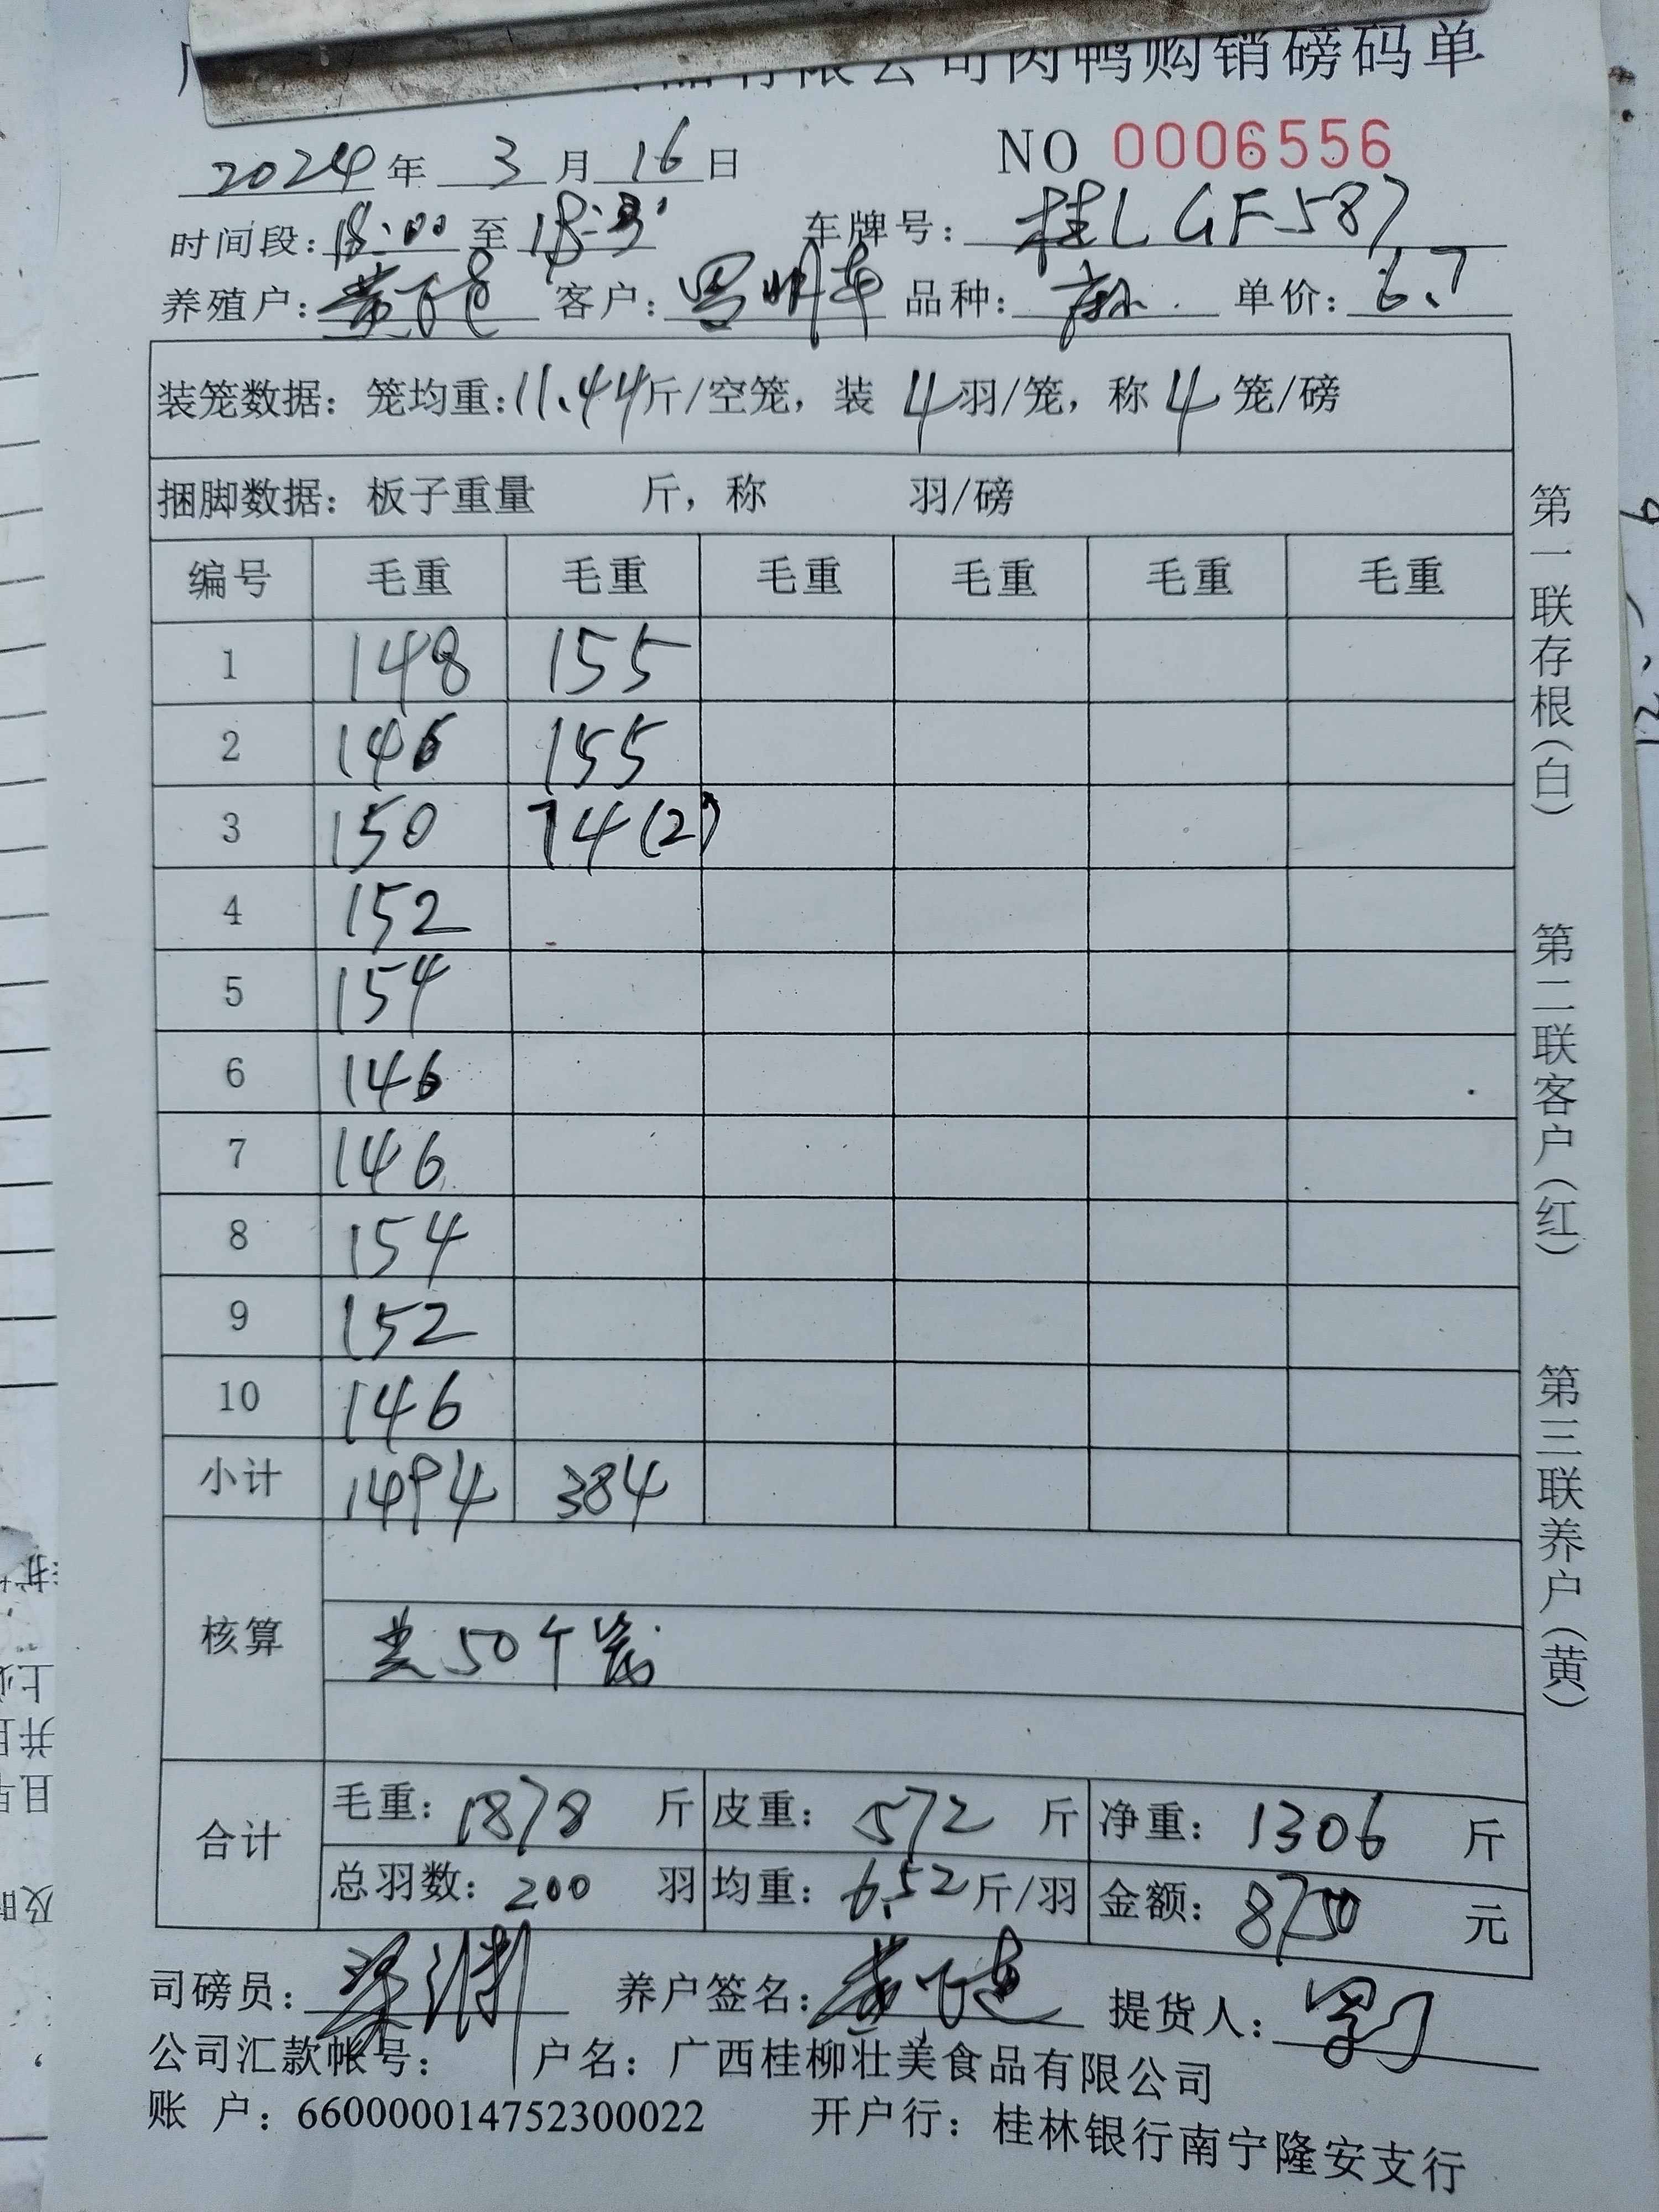 品有限公司肉鸭购销磅码单
2024年 3月16日 NO 0006556
时间段:18:00至 车牌号: 桂LGF587
养殖户:黄 客户:罗明 品种: 单价:6.7
装笼数据: 笼均重:11.44斤/空笼, 装 4羽/笼, 称4笼/磅
捆脚数据: 板子重量 斤, 称 羽/磅
编号 毛重 毛重 毛重 毛重 毛重 毛重
1 148 155
2 146 155
3 150 74(2)
4 152
5 154
6 146
7 146
8 154
9 152
10 146
小计 1494 384
核算 共50个笼
合计 毛重: 1878 斤 皮重: 572 斤 净重: 1306 斤
总羽数: 200 羽 均重: 6.52斤/羽 金额: 8750 元
司磅员:梁 养户签名:黄 提货人:
公司汇款帐号: 户名: 广西桂柳壮美食品有限公司
账 户: 660000014752300022 开户行: 桂林银行南宁隆安支行
第一联存根(白) 第二联客户(红) 第三联养户(黄)